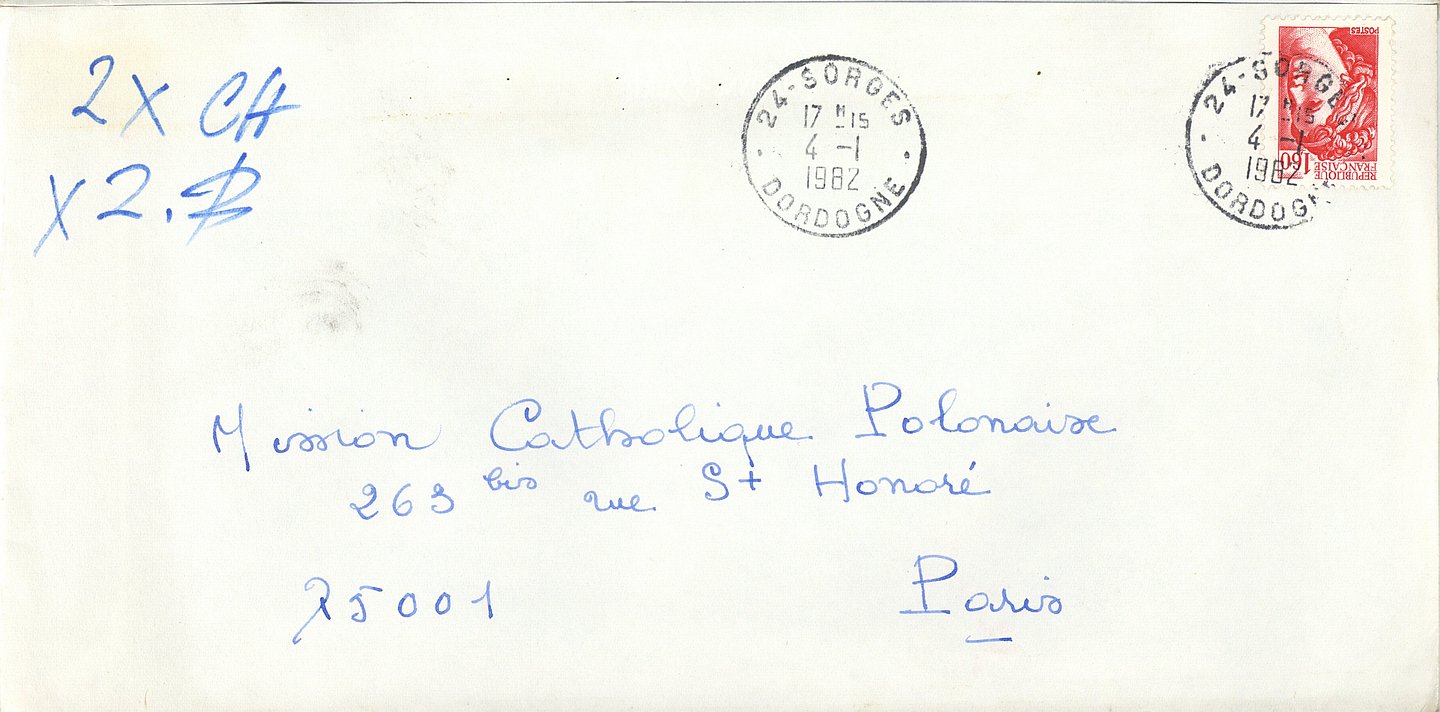 2 X CH
X 2. R
24-SORGES
17 H 15
4 -1
1982
DORDOGNE
24-SORGES
17 H 15
4 -1
1982
DORDOGNE
POSTES
1,60
REPUBLIQUE
FRANCAISE
Mission Catholique Polonaise
263 bis rue St Honoré
75001 Paris